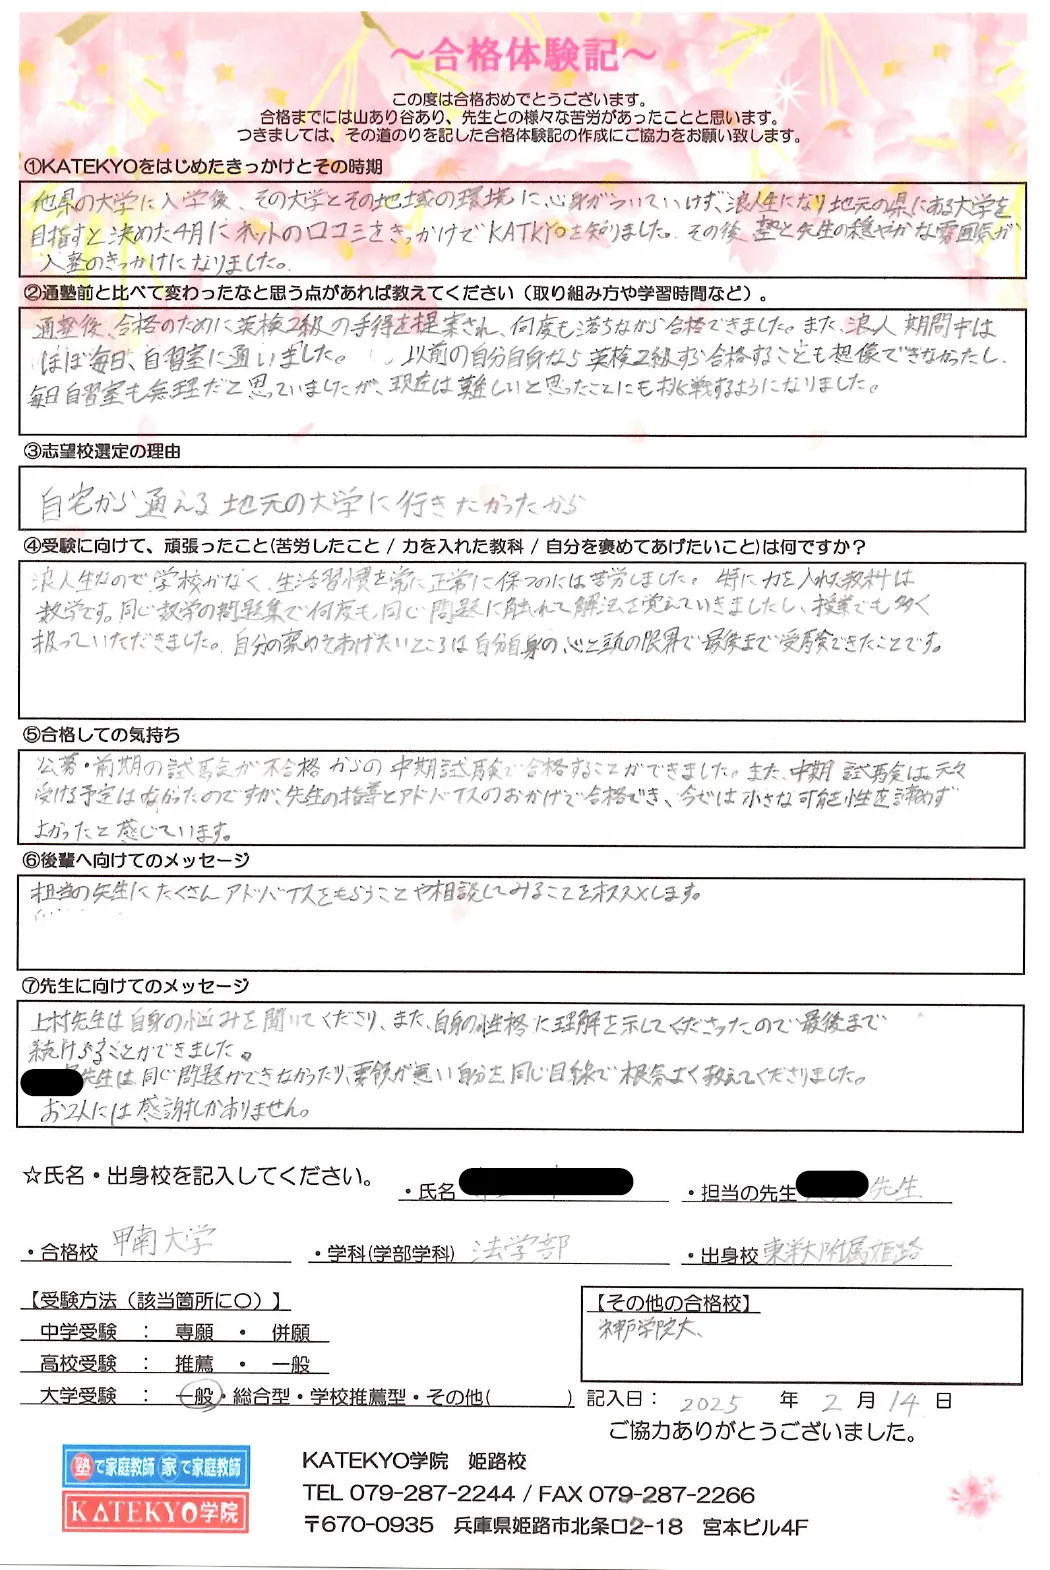 ～合格体験記～
この度は合格おめでとうございます。
合格までには山あり谷あり、先生との様々な苦労があったことと思います。
つきましては、その道のりを記した合格体験記の作成にご協力をお願い致します。
①KATEKYOをはじめたきっかけとその時期
他県の大学に入学後、その大学とその地域の環境に、心身がついていけず、浪人生になり地元の県にある大学を
目指すと決めた4月にネットの口コミをきっかけでKATKYOを知りました。その後、塾と先生の穏やかな雰囲気が
入塾のきっかけになりました。
②通塾前と比べて変わったなと思う点があれば教えてください（取り組み方や学習時間など）。
通塾後、合格のために英検2級の手得を提案され、何度も落ちながら合格できました。また、浪人期間中は
ほぼ毎日、自習室に通いました。以前の自分自身なら英検2級すら合格することも想像できなかったし、
毎日自習室も無理だと思っていましたが、現在は難しいと思ったことにも挑戦するようになりました。
③志望校選定の理由
自宅から通える地元の大学に行きたかったから
④受験に向けて、頑張ったこと(苦労したこと / 力を入れた教科 / 自分を褒めてあげたいこと)は何ですか？
浪人生なので学校がなく、生活習慣を常に正常に保つのには苦労しました。特に力を入れた教科は
数学です。同じ数学の問題集で何度も同じ問題に触れて解法を覚えていきましたし、授業でも多く
扱っていただきました。自分の褒めてあげたいところは自分自身の心と頭の限界で最後まで受験できたことです。
⑤合格しての気持ち
公募・前期の試験が不合格からの中期試験で合格することができました。また、中期試験は元々
受ける予定はなかったのですが、先生の指導とアドバイスのおかげで合格でき、今では小さな可能性を諦めず
よかったと感じています。
⑥後輩へ向けてのメッセージ
担当の先生にたくさんアドバイスをもらうことや相談してみることをオススメします。
⑦先生に向けてのメッセージ
上村先生は自身の悩みを聞いてくださり、また、自身の性格に理解を示してくださったので最後まで
続けることができました。
先生は同じ問題ができなかったり、要領が悪い自分を同じ目線で根気よく教えてくださりました。
お2人には感謝しかありません。
☆氏名・出身校を記入してください。
・氏名
・担当の先生 先生
・合格校 甲南大学
・学科(学部学科) 法学部
・出身校 東洋大附属姫路
【受験方法（該当箇所に〇）】
中学受験 ： 専願 ・ 併願
高校受験 ： 推薦 ・ 一般
大学受験 ： 一般・総合型・学校推薦型・その他( )
【その他の合格校】
神戸学院大、
記入日： 2025 年 2 月 14 日
ご協力ありがとうございました。
塾で家庭教師 家で家庭教師
KATEKYO学院
KATEKYO学院 姫路校
TEL 079-287-2244 / FAX 079-287-2266
〒670-0935 兵庫県姫路市北条口2-18 宮本ビル4F